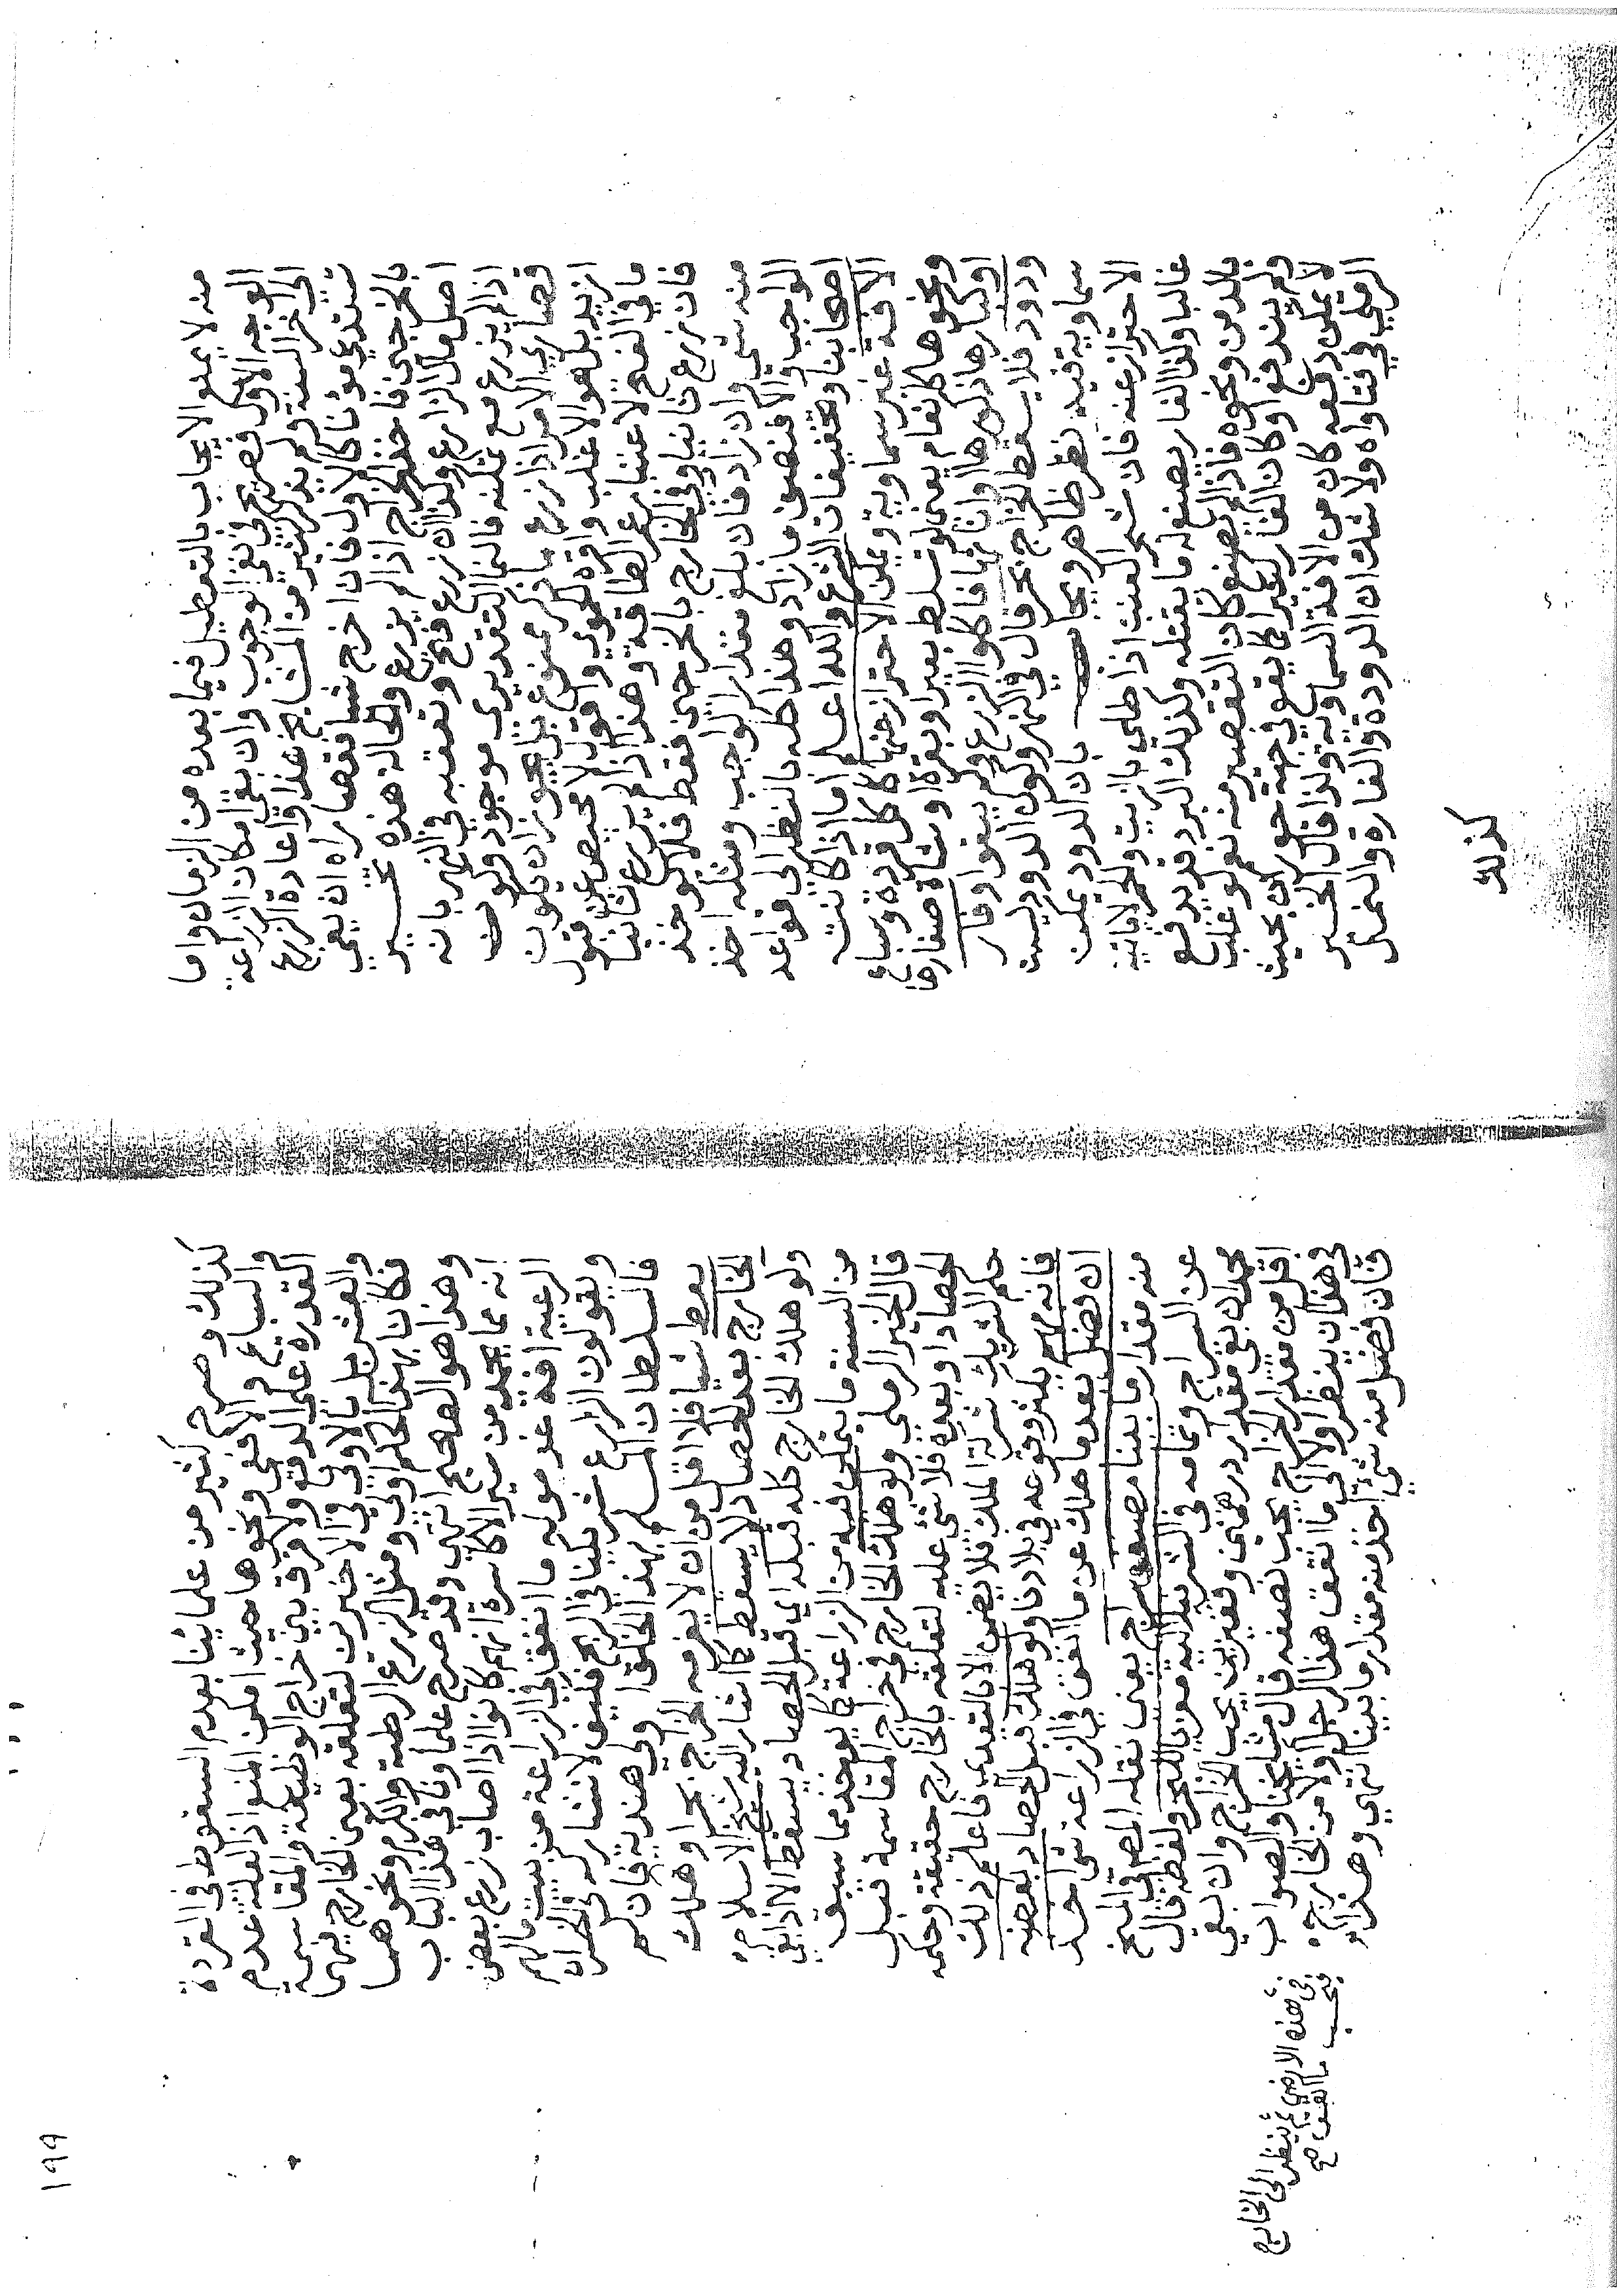 منه لا يمنع الايجاب بالتعطيل فيما بعده من الزمان واما
الوجه الاول فصريح في نفي الوجوب وان بقي امكان الزراعة
الى اخر السنة ولم يذكر كثير من المشايخ هذا واعادة الزرع
تستدعي مؤنا كالاول فان اخرج شيا فقصاراه ان يفي
بالخرجين فاخذ الخراج اذا لم يزرع والحالة هذه تخسير
اصل مال الزارع ولذا ان زرع فتح وتعقبه في النهر بانه
اذا لم يزرع مع تمكنه فالنما التقديري موجود ولو
فصاري الامر اذا زرع ما ذكر ممنوع بل يجوز ان يكون
ازيد بل هو الاغلب واقره الحموي واقول لا محيص عن قبول
ما في الفتح لاعتباره الطاقة وهذا اذا لم يزرع ثانيا
فان زرع ثانيا وفي الخارج بالخرجين فقط فلا يؤخذ
منه شي وان زاد فان بلغ مقدار الواجب ومثله اخذ
الواجب والا فنصف ما زاد وهذا كله بالنظر الى قواعد
اصحابنا وتخفيفات الشرع والله اعلم اما اذا كانت
الافة غير سماوية ويمكن الاحتراز عنها كاكل قردة وسباع
ونحوها كانعام يعني لو تسلط بعير او بقرة او شاة صغارها
او كبارها ذلك حالا وان فاكلوا الزرع ولم يبقوا وفار
ودود فلا يسقط الخراج بحر قال في النهر وكون الدود ليست
سماوية فيه نظر ظاهر ويجاب بان الدود يمكن
الاحتراز عنه فان شجر العنب اذا طلي بالزيت والحمر لا ياتيه
غالبا وكذا الفار يصنع له ما يقتله وكذلك البرد قد يدفع
بالدخن ونحوه فاذا لم يصنع كان التقصير منه نعم لو غلب
ولم يندفع او كان الفار كثيرا كما يقع في جهة حوران بحيث
لا يمكن دفعه كان من الافة السماوية ولذا قال الخير
الرملي في فتاواه ولا شك ان الدودة والفارة والنمل
كذلك
كذلك وصرح كثير من علمائنا بعدم السقوط في القردة
والسباع والافعى ونحوها حيث امكن المنع اذ العلة عدم
القدرة على الدفع ولا فرق بين خراج الوظيفة والمقاسمة
والعشر بل بالاولى في الاخيرين لتعلقه بعين الخارج فيهما
فكانا بهذا الحكم اولى ومثل الزرع الرطبة والكرم ونحوهما
وهذا هو الصحيح انتهى وقد صرح علماؤنا في هذا الباب
انه مما يحمد من سير الاكاسرة انهم كانوا اذا اصاب زرع بعض
الرعية افة غرموا له ما انفق في الزراعة من بيت مالهم
ويقولون الزارع شريكنا في الربح فكيف لا نشاركه في الخسران
فالسلطان المسلم بهذا الخلق اولى هندية فان لم
يعط شيا فلا اقل من ان لا يغرمه الخراج بحر او هلك
الخارج بعد الحصاد لا يسقط كما اشار اليه شيخ الاسلام
ولو هلك الخارج كله قبله اي قبل الحصاد يسقط الا اذا بقي
من السنة ما يتمكن فيه من الزراعة كما يؤخذ مما سبق
قال الخير الرملي ولو هلك الخارج في خراج المقاسمة قبل
الحصاد او بعده فلا شئ عليه لتعلقه بالخارج حقيقة وحكمه
حكم الشريك شركة الملك فلا يضمن الا بالتعدي فاعلم ذلك
فانه مهم يكثر وقوعه في بلادنا ولو هلك قبل الحصاد بعضه
ان فضل بعد ما هلك عن ما انفق في الزراعة شئ اخذ
منه مقدار ما بينا مصنف سراج يعني نقله المصنف في المنح
عن السراج وتمامه في الشرنبلالية معزيا للبحر ولفظه قال
محمد ان بقي مقدار درهمين وقفيزين يجب الخراج وان بقي
اقل من مقدار الخراج يجب نصفه قال مشايخنا والصواب
في هذا ان ينظر اولا الى ما انفق هذا الرجل ولا من الخارج
فان فضل منه شي اخذ منه مقدار ما بينا انتهى وهذا
في هذه الارض ثم ينظر الى الخارج
فيحسب ما انفق صح
١٩٩